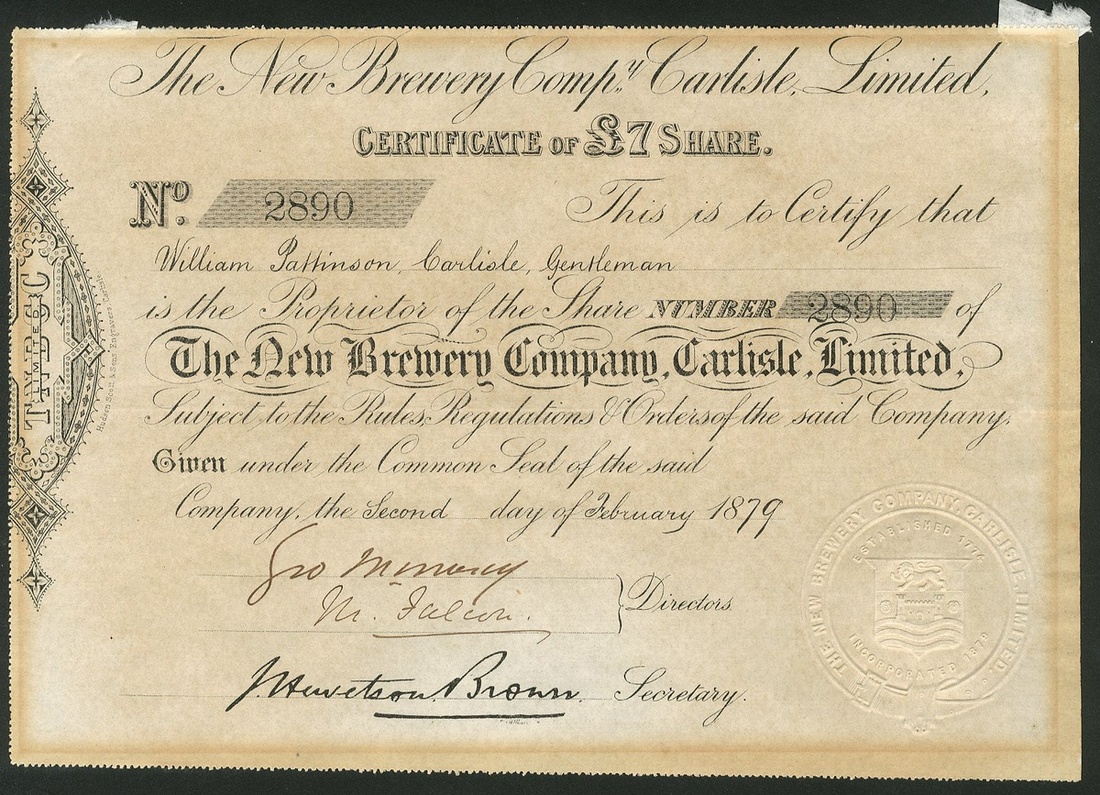 The New Brewery Comp.y Carlisle, Limited,
CERTIFICATE OF £7 SHARE.
No. 2890 This is to Certify that
William Pattinson, Carlisle, Gentleman
is the Proprietor of the Share NUMBER 2890 of
The New Brewery Company, Carlisle, Limited,
Subject to the Rules, Regulations & Orders of the said Company,
Given under the Common Seal of the said
Company, the Second day of February 1879
M. Falcon.
Directors.
J Hewetson Brown. Secretary.
THE NEW BREWERY COMPANY, CARLISLE, LIMITED
ESTABLISHED
INCORPORATED 1879
LIMITED
Hudson Scott & Sons Engravers Carlisle